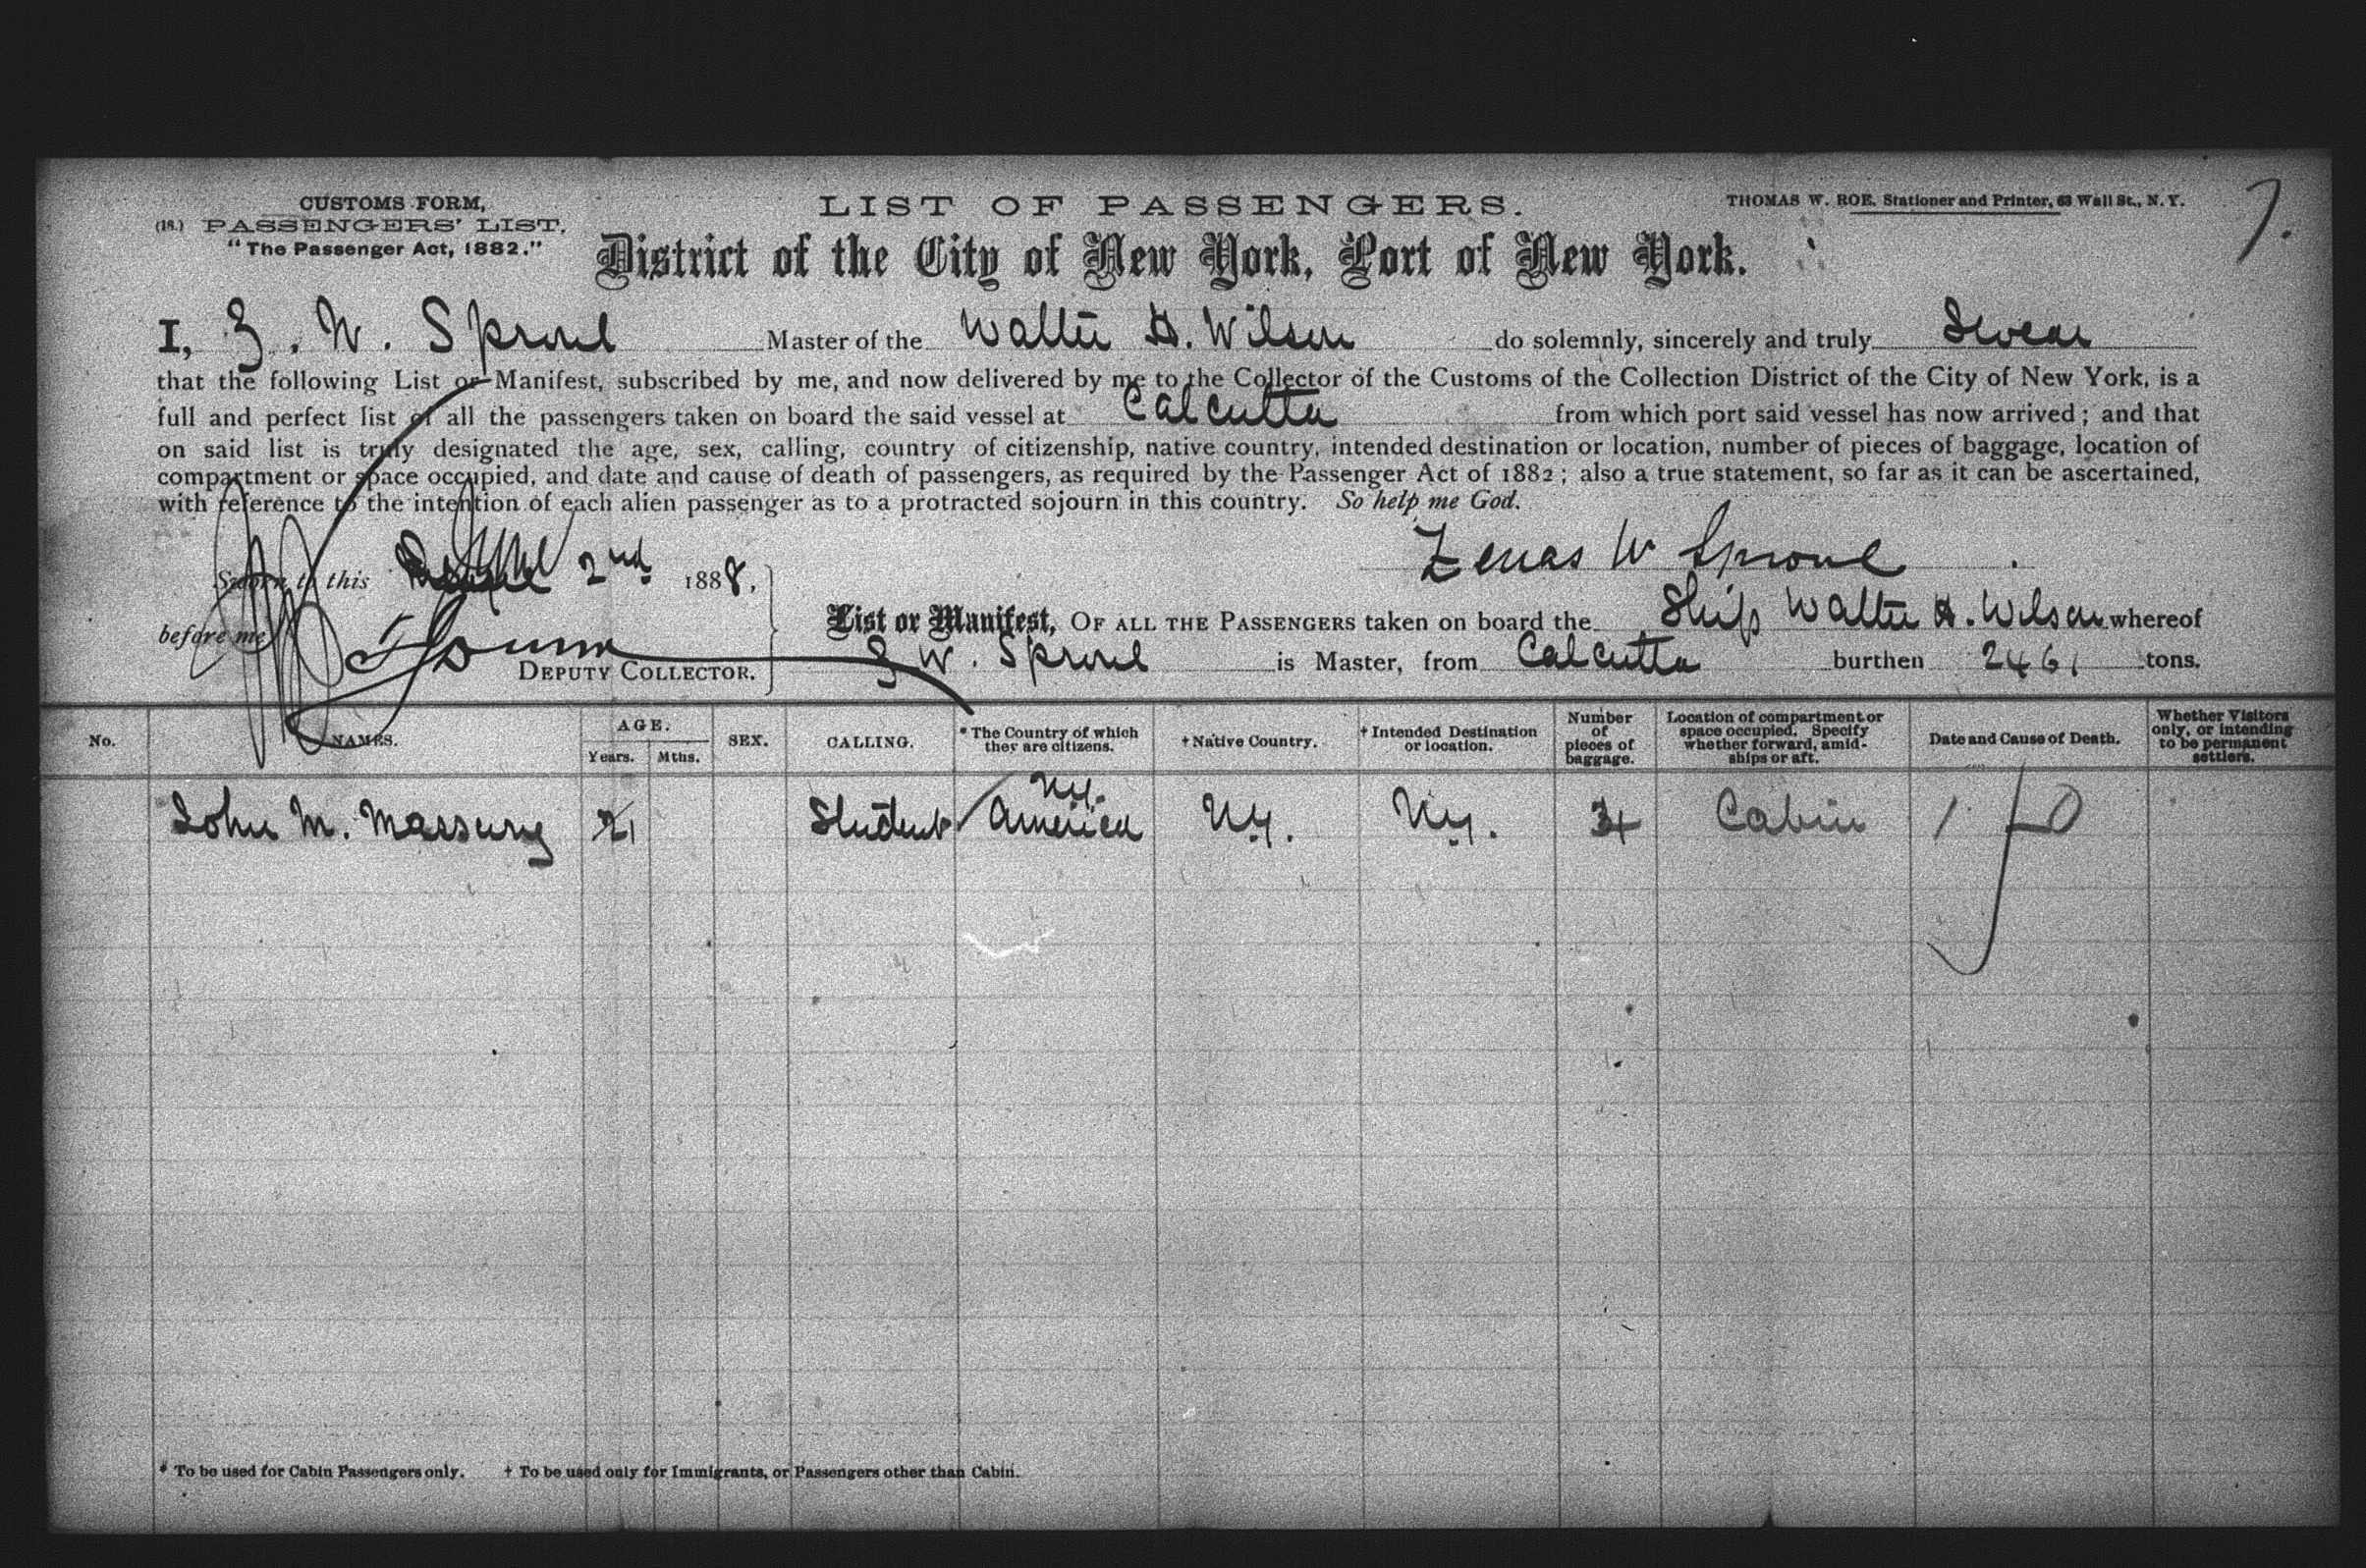 CUSTOMS FORM,
(18.) PASSENGERS' LIST,
"The Passenger Act, 1882."
LIST OF PASSENGERS.
THOMAS W. ROE, Stationer and Printer, 63 Wall St., N. Y.
7.
District of the City of New York, Port of New York.
I, Z. W. Sproul Master of the Walter H. Wilson do solemnly, sincerely and truly Swear
that the following List or Manifest, subscribed by me, and now delivered by me to the Collector of the Customs of the Collection District of the City of New York, is a
full and perfect list of all the passengers taken on board the said vessel at Calcutta from which port said vessel has now arrived; and that
on said list is truly designated the age, sex, calling, country of citizenship, native country, intended destination or location, number of pieces of baggage, location of
compartment or space occupied, and date and cause of death of passengers, as required by the Passenger Act of 1882; also a true statement, so far as it can be ascertained,
with reference to the intention of each alien passenger as to a protracted sojourn in this country. So help me God.
Zenas W Sproul
Sworn to this 2nd 1888,
before me
DEPUTY COLLECTOR.
List or Manifest, OF ALL THE PASSENGERS taken on board the Ship Walter H. Wilson whereof
Z W. Sproul is Master, from Calcutta burthen 2461 tons.
No. NAMES. AGE. Years. Mths. SEX. CALLING. * The Country of which they are citizens. † Native Country. † Intended Destination or location. Number of pieces of baggage. Location of compartment or space occupied. Specify whether forward, amidships or aft. Date and Cause of Death. Whether Visitors only, or intending to be permanent settlers.
N.Y.
John M. Massury 21 Student America N.Y. N.Y. Cabin
* To be used for Cabin Passengers only. † To be used only for Immigrants, or Passengers other than Cabin.